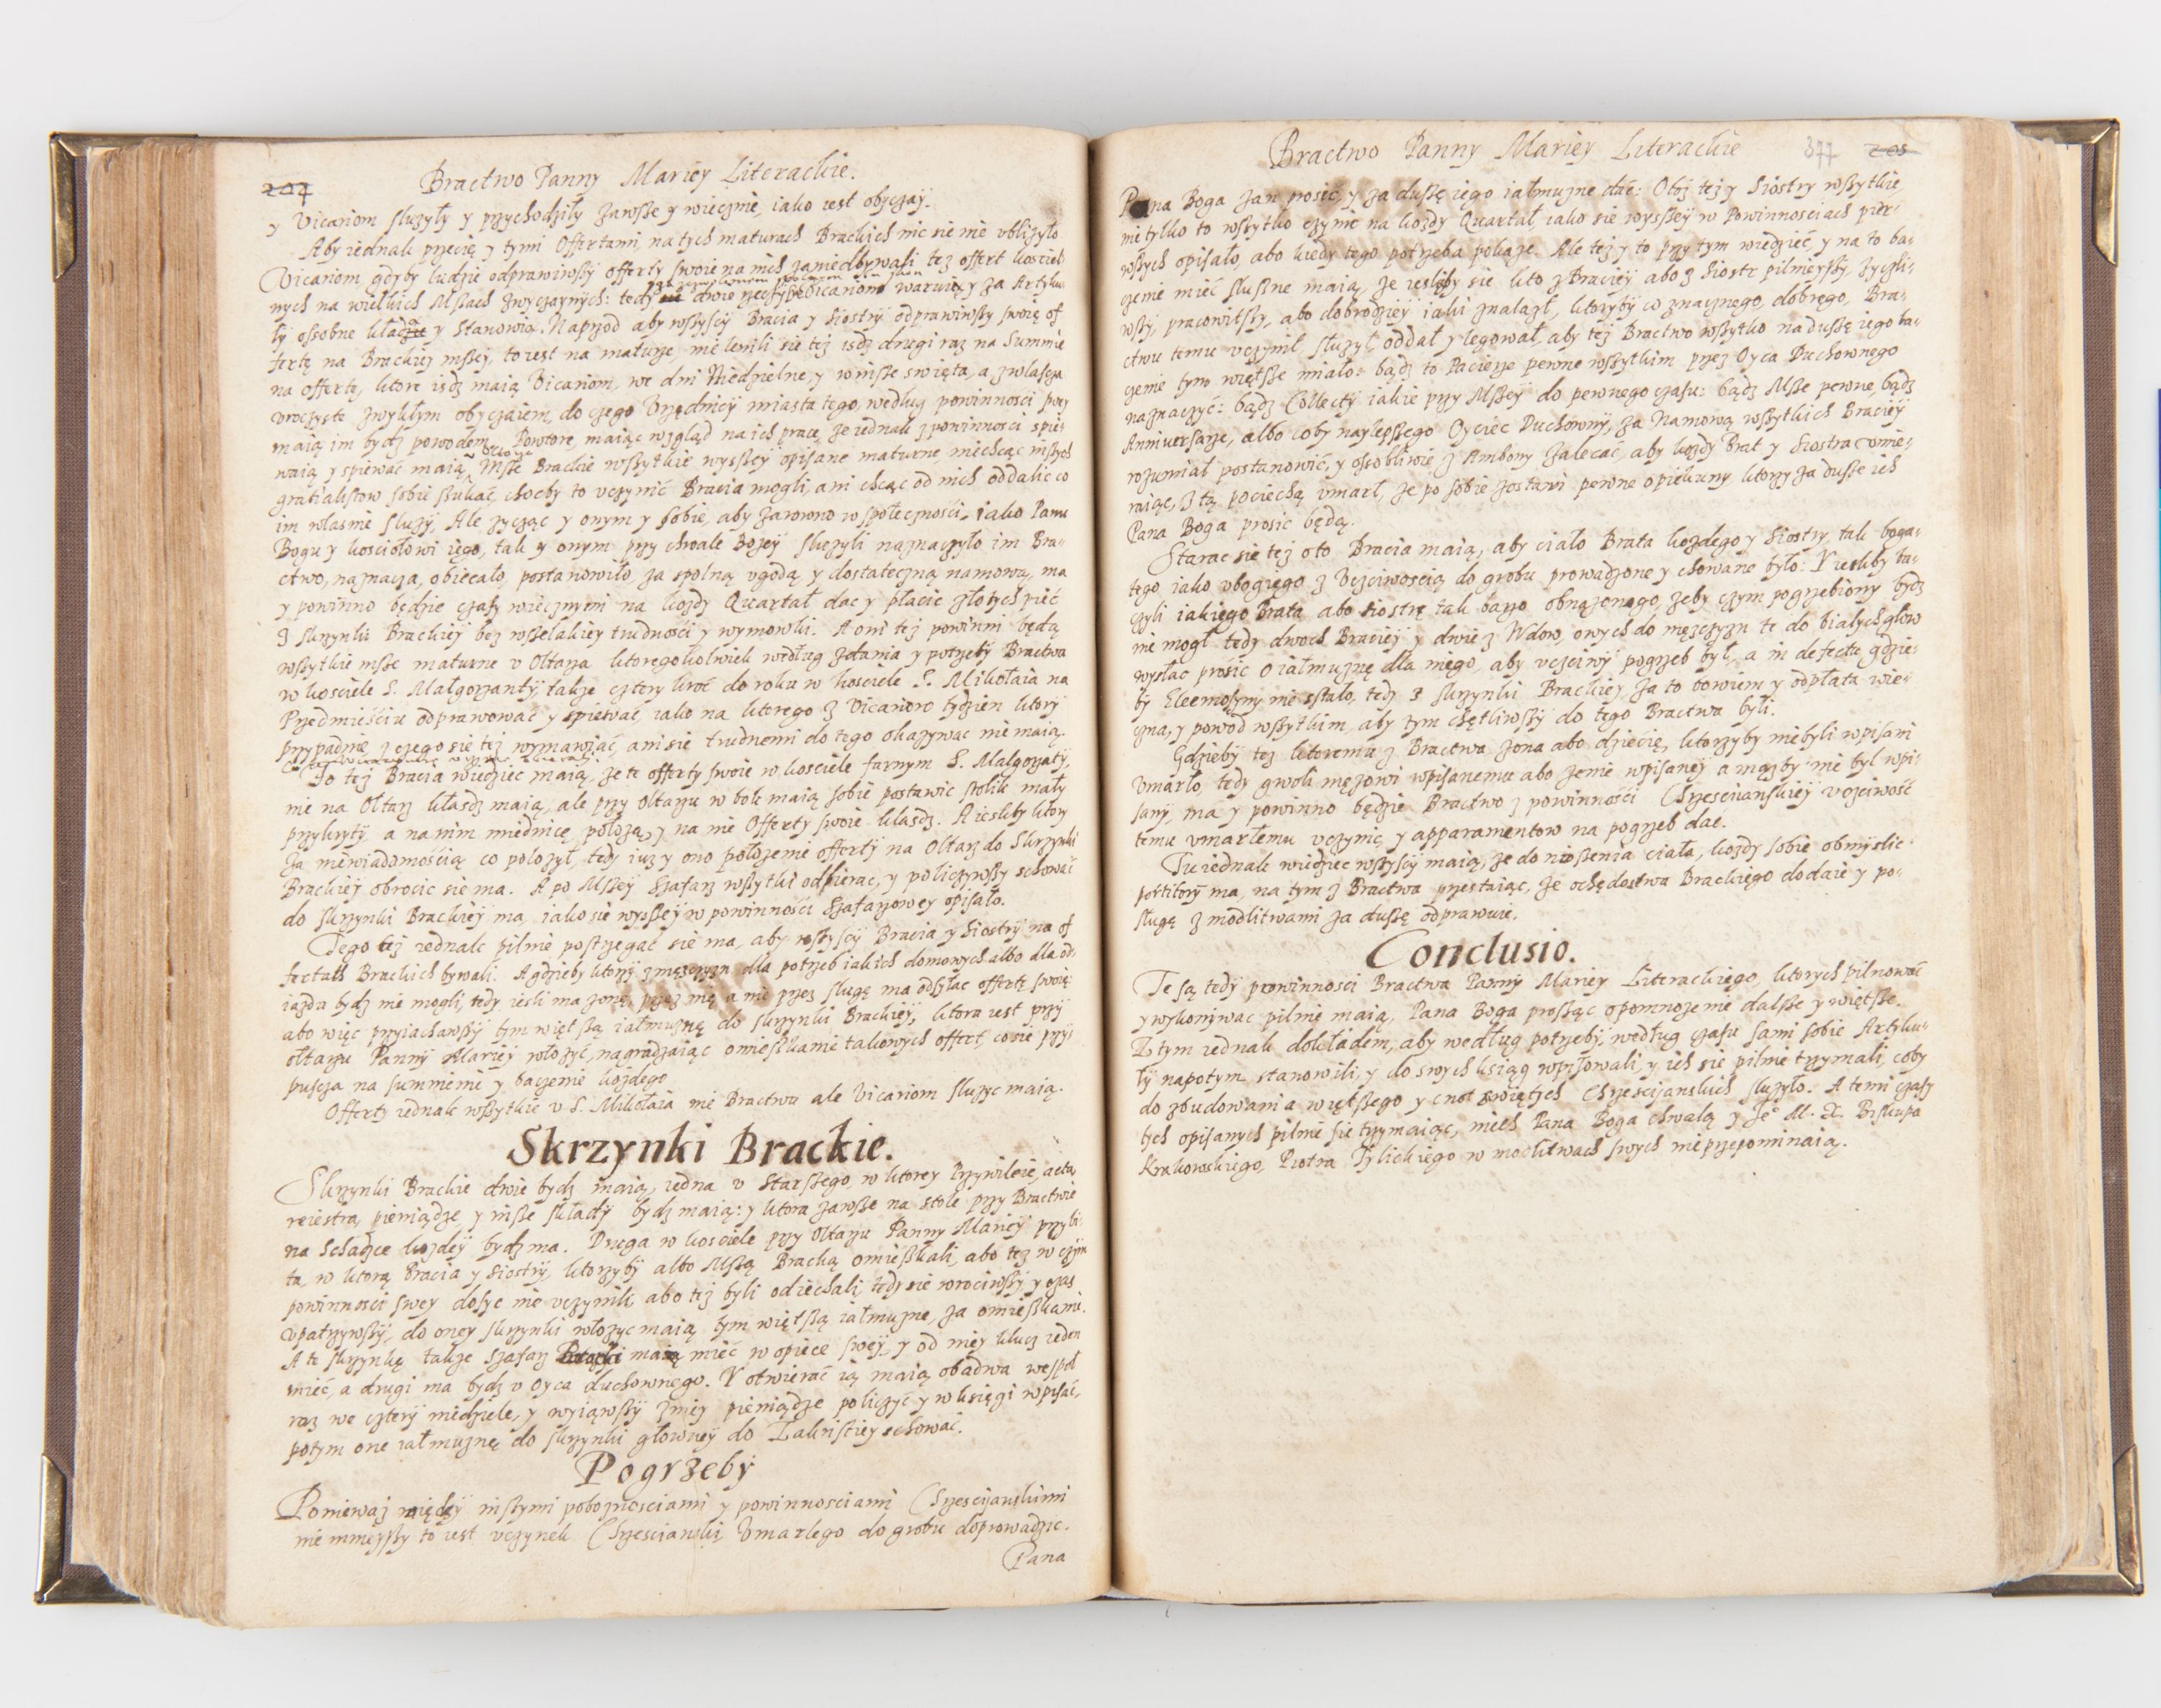 204
Bractwo Panny Mariey Literackie.
y Vicariom służyły y przychodziły zawsze y wiecznie, iako iest obyczay.
Aby iednak przecię y tymi Offertami, na tych maturach Brackich nic sie nie vbliżyło
Vicariom, gdyby ludzie odprawiwszy offerty swoie na nich zaniedbywali też offert kościel
nych na wielkich Mszach zwyczaynych: tedy dwie rzeczy Vicariom waruią y za Artyku
ły osobne kładzie y stanowią. Naprzod aby wszyscy Bracia y Siostry odprawiwszy swoię of
fertę na Brackiey mszey, to iest na maturze, nie lenili sie też isdz drugi raz na Summie
na offertę, ktore isdz maią Vicariom, we dni Niedzielne, y w insze swięta, a zwłaszcza
vroczyste zwykłym obyczaiem, do czego Vrzędnicy miasta tego, według powinności swey
maią im bydz powodem. Powtore, maiąc wzgląd na ich pracę, że iednak z powinności spie
waią y spiewać maią Msze Brackie wszytkie wysszey opisane maturne, niechcąc inszych
gratialistow sobie szukać, choćby to vczynić Bracia mogli, ani chcąc od nich oddalić co
im własnie służy, Ale życząc y onym y sobie, aby zarowno w społeczności, iako Panu
Bogu y kościołowi iego, tak y onym przy chwale Bożey służyli naznaczyło im Bra-
ctwo, naznacza, obiecało, postanowiło za spolną vgodą y dostateczną namową, ma
y powinno będzie czasy wiecznymi na każdy Quartał dac y płacic złotych pięć
z skrzynki Brackiey bez wszelakiey trudności y wymowki. A oni też powinni będą
wszytkie msze maturne v Ołtarza ktoregokolwiek według żądania y potrzeby Bractwa
w kościele S. Małgorzanty, także cztery kroć do roku w kościele S. Mikołaia na
Przedmieściu odprawować y spiewać, iako na ktorego z Vicariow tydzien ktory
przypadnie, z czego sie też wymawiać, ani sie trudnemi do tego okazywac nie maią.
To też Bracia wiedzieć maią, że te offerty swoie w kościele farnym S. Małgorzaty,
nie na Ołtarz kłasdz maią, ale przy Ołtarzu w bok maią sobie postawic stolik mały
przykryty, a na nim miednicę położą, y na nie Offerty swoie kłasdz. A iesliby ktory
za niewiadomością co położył, tedy iuż y ono położenie offerty na Ołtarz do Skrzynki
Brackiey obrocic sie ma. A po Mszey Szafarz wszytki odbierac, y policzywszy schować
do skrzynki Brackiey ma, iako sie wysszey w powinności Szafarzowey opisało.
Tego też iednak pilnie postrzegać sie ma, aby wszyscy Bracia y Siostry na of
fertach Brackich bywali. A gdzieby ktory z mężczyzn dla potrzeb iakich domowych albo dla od-
iazda bydz nie mogli, tedy iesli ma żonę, przez nię a nie przez sługę ma odsyłac offertę swoię
abo więc przyiachawszy tym większą iałmużnę do skrzynki Brackiey, ktora iest przy
ołtarzu Panny Mariey włożyć, nagradzaiąc omieszkanie takowych offert, co sie przy
puscza na sumnienie y baczenie każdego
Offerty iednak wszytkie v S. Mikołaia nie Bractwu ale Vicariom służyc maią.
Skrzynki Brackie.
Skrzynki Brackie dwie bydz maią, iedna v Starszego, w ktorey Przywileie, acta,
reiestra, pieniądze, y insze składy bydz maią: y ktora zawsze na stole przy Bractwie
na Schadzce każdey bydz ma. Druga w kościele przy Ołtarzu Panny Mariey przybi-
ta, w ktorą Bracia y Siostry, ktorzyby albo Mszą Bracką omieszkali, abo też w czym
powinnosci swey dosyc nie vczynili, abo też byli odiechali, tedy sie wrociwszy y czas
vpatrzywszy, do oney skrzynki włożyc maią tym większą iałmużnę, za omieszkanie.
A tę skrzynkę także szafarz maią mieć w opiece swey, y od niey klucz ieden
mieć, a drugi ma bydz v oyca duchownego. Y otwierać ią maią obadwa wespoł
raz we cztery niedziele, y wyiąwszy z niey pieniądze policzyć y w księgi wpisać,
potym one iałmużnę do skrzynki głowney do Zakristiey schować.
Pogrzeby
Poniewaz między inszymi pobożnosciami y powinnosciami Chrzescijanskimi
nie mnieyszy to iest vczynek Chrzescianski, Vmarlego do grobu doprowadzic.
Pana
Bractwo Panny Mariey Literackie
877 205
Pana Boga zan prosić, y za duszę iego iałmużnę dać: Otoż też y Siostry wszytkie
nie tylko to wszytko czynic na każdy Quartał, iako sie wysszey w Powinnosciach pier-
wszych opisało, abo kiedy tego potrzeba pokaże. Ale też y to przy tym wiedzieć, y na to ba-
czenie mieć słuszne maią, że iesliby się kto z Braciey abo z Siostr pilnieyszy, życzli-
wszy, pracowitszy, abo dobrodziey iaki znalazł, ktoryby co znacznego, dobrego, Bra-
ctwu temu vczynił, służył, oddał y legował, aby też Bractwo wszytko na duszę iego ba-
czenie tym większe miało: bądz to Pacierze pewne wszytkim przez Oyca Duchownego
naznaczyć: bądz Collecty iakie przy Mszey do pewnego czasu: bądz Msze pewne, bądz
Anniversarze, albo coby naylepszego Oyciec Duchowny, za Namową wszytkich Braciey
rozumiał postanowić, y osobliwie z Ambony zalecać, aby każdy Brat y Siostra vmie-
raiąc, z tą pociechą vmarł, że po sobie zostawi pewne opiekuny ktorzy za dusze ich
Pana Boga prosic będą.
Starac sie też oto Bracia maią, aby ciało Brata każdego y Siostry, tak boga-
tego iako vbogiego z Vczciwością do grobu prowadzone y chowane było: Y iesliby ba-
czyli iakiego Brata abo Siostrę tak barzo obnażonego, żeby czym pogrzebiony bydz
nie mogł tedy dwoch Braciey y dwie z Wdow, owych do męzczyzn te do białychgłow
wysłac prosic o iałmużnę dla niego, aby vczciwy pogrzeb był, a in defectu gdzie-
by Eleemosyny nie zstało, tedy z skrzynki Brackiey, za to bowiem y odpłata wie-
czna, y powod wszytkim, aby tym chętliwszy do tego Bractwa byli.
Gdzieby też ktoremu z Bractwa żona abo dziecię, ktorzyby nie byli wpisani
Vmarło, tedy gwoli mężowi wpisanemu abo żenie wpisaney a mąż by nie był wpi-
sany, ma y powinno będzie Bractwo z powinności Chrzescijanskiey vczciwość
temu vmarłemu vczynić y apparamentow na pogrzeb dac.
Tu iednak wiedziec wszyscy maią, że do niesienia ciała, każdy sobie obmyslic
portitory ma, na tym z Bractwa przestaiąc, że ochędostwa Brackiego dodaie y po-
sługę z modlitwami za duszę odprawuie.
Conclusio.
Te są tedy powinnosci Bractwa Panny Mariey Literackiego, ktorych pilnować
y wykonywac pilnie maią, Pana Boga prosząc o pomnożenie dalsze y większe.
Z tym iednak dokładem, aby według potrzeby, według czasu sami sobie Artyku-
ły napotym stanowili, y do swych ksiąg wpisowali, y ich sie pilnie trzymali, coby
do zbudowania większego y cnot świętych Chrzescijanskich służyło. A temi czasy
tych opisanych pilnie sie trzymaiąc, niech Pana Boga chwalą y Je° M. X. Biskupa
Krakowskiego, Piotra Tylickiego w modlitwach swych nie przepominaią.